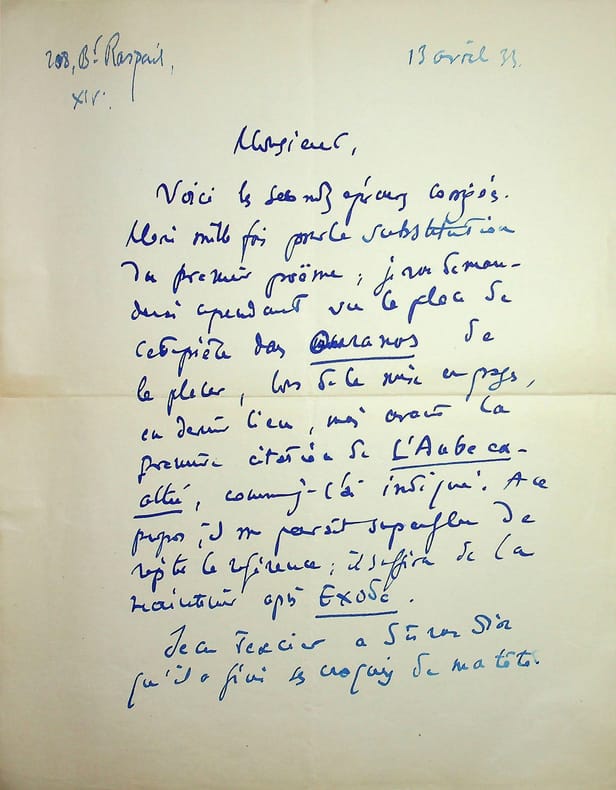 208, Bd Raspail,
XIV.
13 avril 33.
Monsieur,
Voici les secondes épreuves corrigées.
Merci mille fois pour la substitution
du premier poème ; je vous deman-
derai cependant vu la place de
cette pièce dans Ouranos de
la placer, lors de la mise en pages,
en dernier lieu, mais avant la
première citation de L'Aube ca-
comme j'l'ai indiqué. A ce
propos, il me paraît superflu de
répéter la référence ; il suffira de la
maintenir après Exode.
Jean Tercier a dû vous dire
qu'il a fini ses croquis de ma tête.